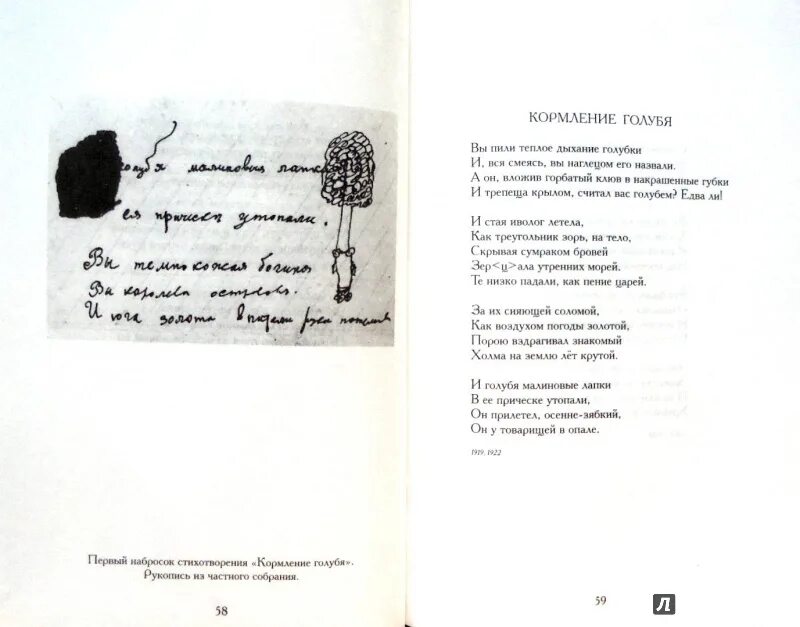 голубя малиновыя лапки
ея прическѣ утопали.
Вы темнокожая богиня
Вы королева острововъ.
И юга золота
Первый набросок стихотворения «Кормление голубя».
Рукопись из частного собрания.
58
КОРМЛЕНИЕ ГОЛУБЯ
Вы пили теплое дыхание голубки
И, вся смеясь, вы наглецом его назвали.
А он, вложив горбатый клюв в накрашенные губки
И трепеща крылом, считал вас голубем? Едва ли!
И стая иволог летела,
Как треугольник зорь, на тело,
Скрывая сумраком бровей
Зер<ц>ала утренних морей.
Те низко падали, как пение царей.
За их сияющей соломой,
Как воздухом погоды золотой,
Порою вздрагивал знакомый
Холма на землю лёт крутой.
И голубя малиновые лапки
В ее прическе утопали,
Он прилетел, осенне-зябкий,
Он у товарищей в опале.
1919, 1922
59
Л